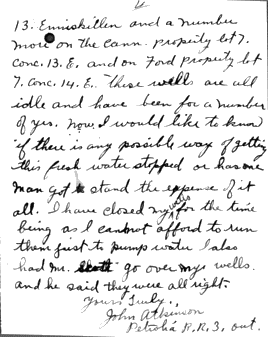 13. Enniskillen and a number
more on the Cann. property lot 7.
Conc. 13. E. and on Ford property lot
7. Conc. 14. E. These wells are all
idle and have been for a number
of yrs. now, I would like to know
if there is any possible way of getting
this fresh water stopped or has one
man got to stand the expense of it
all. I have closed my wells for the time
being as I cannot afford to run
them just to pump water I also
had Mr. go over my wells.
and he said they were all right.
Yours truly,
John Atkinson
Petrolia R.R.3, Ont.